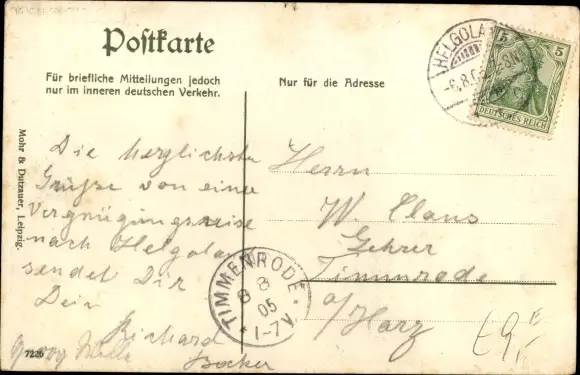 Postkarte
Für briefliche Mitteilungen jedoch
nur im inneren deutschen Verkehr.
Nur für die Adresse
HELGOLA
-6.8.0
5 5
DEUTSCHES REICH
Mohr & Dutzauer, Leipzig.
Die herzlichsten
Grüße von einer
Vergnügungsreise
nach Helgoland
sendet Dir
Dein
Richard
Becker
7226
Herrn
W. Claus
Lehrer
Timmrode
a/Harz
TIMMENRODE
8 8
05
*1-7V